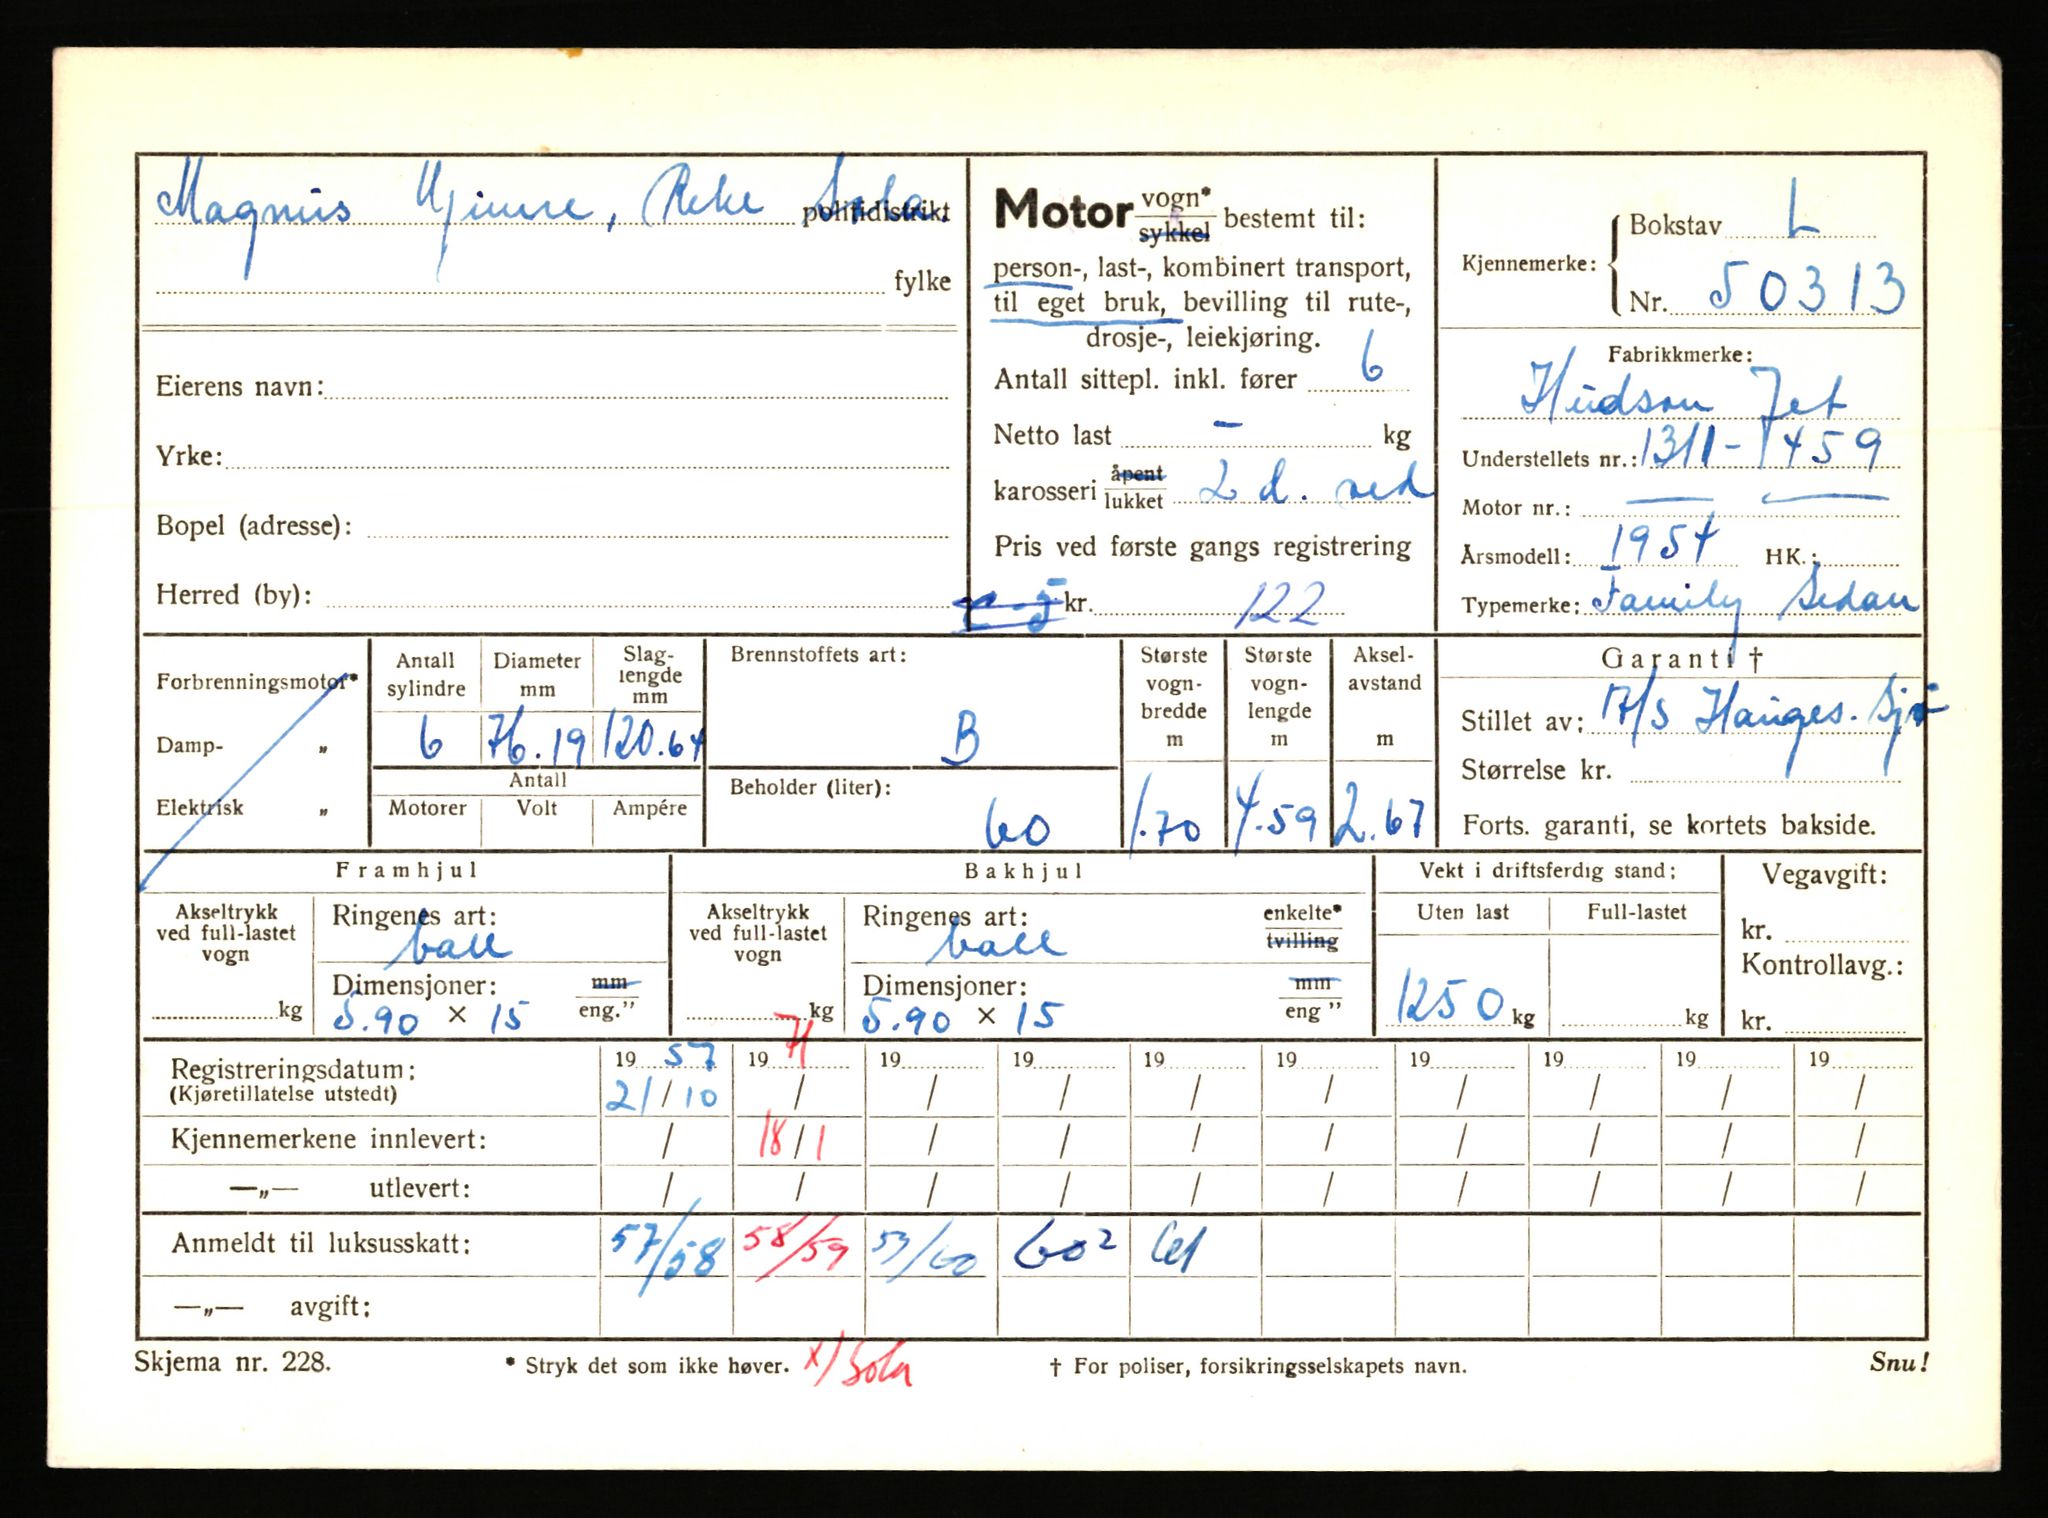 Magnus Gimre, Reke Sola.
politidistrikt
fylke
Eierens navn:
Yrke:
Bopel (adresse):
Herred (by):
Motor vogn* sykkel bestemt til:
person-, last-, kombinert transport,
til eget bruk, bevilling til rute-,
drosje-, leiekjøring.
Antall sittepl. inkl. fører 6
Netto last - kg
karosseri åpent lukket 2 d. sed
Pris ved første gangs registrering
kr. 122
Kjennemerke: Bokstav L
Nr. 50313
Fabrikkmerke:
Hudson Jet
Understellets nr.: 1311-7459
Motor nr.:
Årsmodell: 1954 HK.:
Typemerke: Family Sedan
Forbrenningsmotor*
Damp- „
Elektrisk „
Antall sylindre 6
Diameter mm 76.19
Slaglengde mm 120.64
Antall
Motorer Volt Ampére
Brennstoffets art:
B
Beholder (liter):
60
Største vogn-bredde m 1.70
Største vogn-lengde m 4.59
Aksel-avstand m 2.67
Garanti †
Stillet av: Hauges. Sjø
Størrelse kr.
Forts. garanti, se kortets bakside.
Framhjul
Akseltrykk ved full-lastet vogn
kg
Ringenes art:
ball
Dimensjoner: mm eng."
5.90 × 15
Bakhjul
Akseltrykk ved full-lastet vogn
kg
Ringenes art: enkelte* tvilling
ball
Dimensjoner: mm eng"
5.90 × 15
Vekt i driftsferdig stand:
Uten last Full-lastet
1250 kg kg
Vegavgift:
kr.
Kontrollavg.:
kr.
Registreringsdatum: 19 57 19 71 19 19 19 19 19 19 19 19
(Kjøretillatelse utstedt) 21/10 / / / / / / / / /
Kjennemerkene innlevert: / 18/1 / / / / / / / /
—„— utlevert: / / / / / / / / / /
Anmeldt til luksusskatt: 57/58 58/59 59/60 60² 61
—„— avgift:
Skjema nr. 228. * Stryk det som ikke høver. x/ Sola † For poliser, forsikringsselskapets navn. Snu!